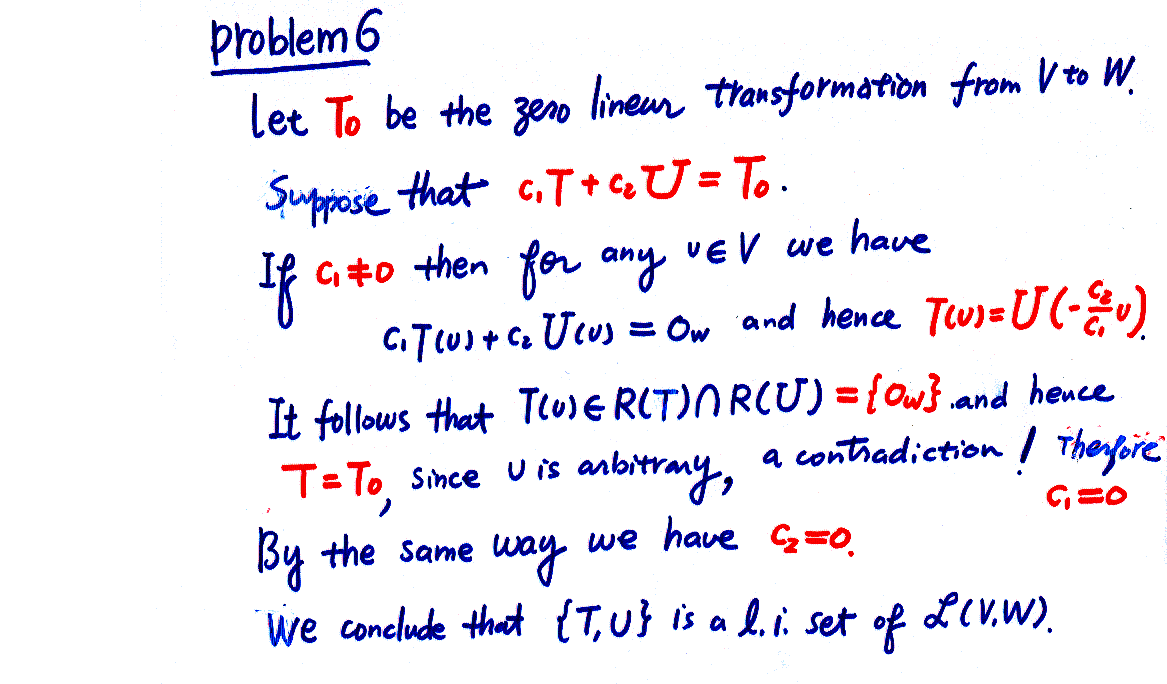 problem 6
Let T₀ be the zero linear transformation from V to W.
Suppose that c₁T + c₂U = T₀.
If c₁≠0 then for any υ∈V we have
c₁T(υ) + c₂U(υ) = 0w and hence T(υ)=U(-c₂/c₁υ).
It follows that T(υ)∈R(T)∩R(U) = {0w}. and hence
T=T₀, since υ is arbitrary, a contradiction! Therefore
c₁=0
By the same way we have c₂=0.
We conclude that {T,U} is a l.i. set of ℒ(V,W).